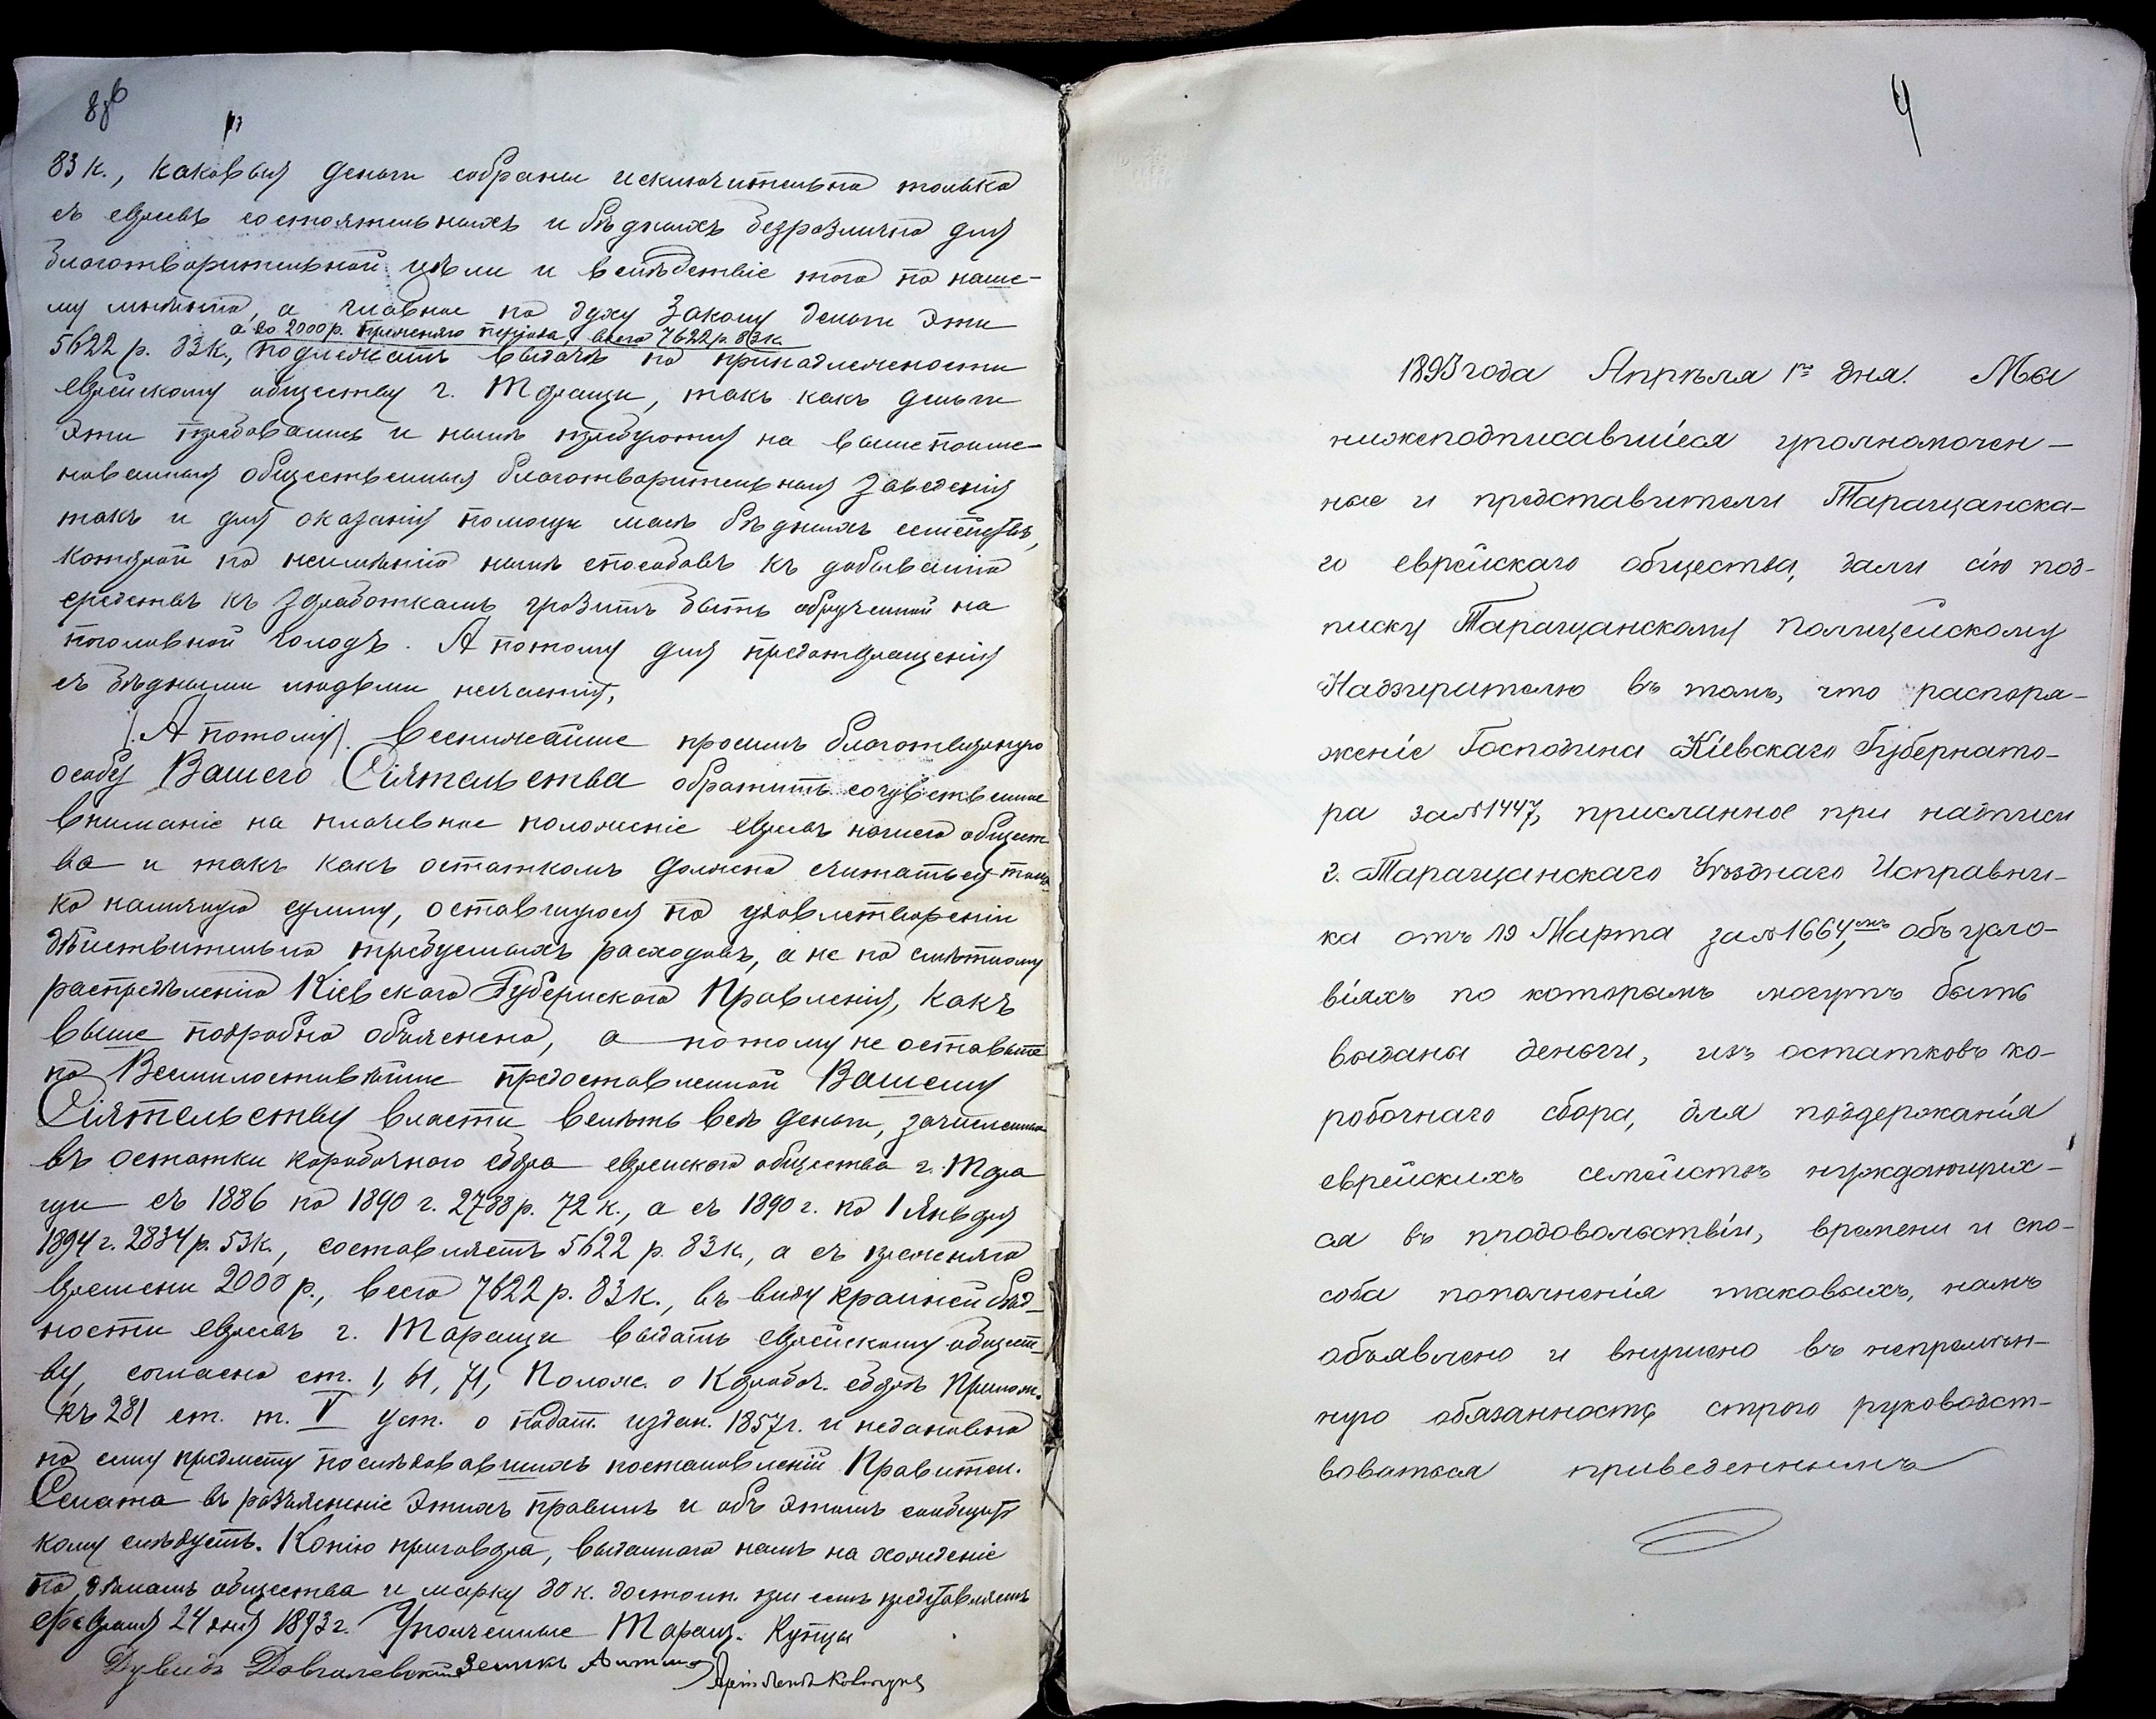 83 к., каковыя деньги собраны исключительно только
съ евреевъ состоятельныхъ и бѣдныхъ безразлично для
благотворительной цѣли и вслѣдствіе того по наше-
му мнѣнію, а главное по духу закону деньги эти
а со 2000 р. прежняго періода, всего 7622 р. 83 к.
5622 р. 83 к., подлежатъ выдачѣ по принадлежности
еврейскому обществу г. Таращи, такъ какъ деньги
эти требовались и нынѣ требуются на вышепоиме-
нованныя общественныя благотворительныя заведенія
такъ и для оказанія помощи массѣ бѣдныхъ семействъ,
которой по неимѣнію нынѣ способовъ къ добыванію
средствъ къ заработкамъ грозитъ быть обреченной на
поголовной голодъ. А потому для предотвращенія
съ бѣдными людьми несчастія,
(А потому). Всенижайше просимъ благотворную
особу Вашего Сіятельства обратить сочувственное
вниманіе на плачевное положеніе евреевъ нашего общест
ва и такъ какъ остаткомъ должно считаться толь
ко наличную сумму, оставшуюся по удовлетвореніи
дѣйствительно требуемыхъ расходовъ, а не по смѣтному
распредѣленію Кіевскаго Губернскаго Правленія, какъ
выше подробно объяснено, а потому не оставьте
по Всемилостивѣйше предоставленной Вашему
Сіятельству власти велѣть всѣ деньги, зачисленные
въ остатки коробочнаго сбора еврейскаго общества г. Тара
щи съ 1886 по 1890 г. 2788 р. 72 к., а съ 1890 г. по 1 Января
1894 г. 2834 р. 53 к., составляетъ 5622 р. 83 к., а съ прежняго
времени 2000 р., всего 7622 р. 83 к., въ виду крайней бѣд-
ности евреевъ г. Таращи выдать еврейскому общест-
ву, согласно ст. 1, 61, 71, Полож. о Коробоч. сборѣ Прилож.
къ 281 ст. т. V уст. о подат. издан. 1857 г. и недавно
по сему предмету послѣдовавшихъ постановленій Правител.
Сената въ разъясненіе этихъ правилъ и объ этомъ сообщить
кому слѣдуетъ. Копію приговора, выданнаго намъ на хожденіе
по дѣламъ общества и марку 80 к. достоин. при семъ представляемъ
Февраля 24 дня 1893 г. Уполченные Таращ. Купцы
Дувидъ Довгалевскій Зеликъ
4
1893 года Апрѣля 1го дня. Мы
нижеподписавшіеся уполномочен-
ные и представители Таращанска-
го еврейскаго общества, дали сію под-
писку Таращанскому Полицейскому
Надзирателю въ томъ, что распоря-
женіе Господина Кіевскаго Губернато-
ра за № 1447, присланное при надписи
г. Таращанскаго Уѣзднаго Исправни-
ка отъ 19 Марта за № 1664, объ усло-
віяхъ по которымъ могутъ быть
выданы деньги, изъ остатковъ ко-
робочнаго сбора, для поддержанія
еврейскихъ семействъ нуждающих-
ся въ продовольствіи, времени и спо-
соба пополненія таковыхъ, намъ
объявлено и внушено въ непремѣн-
ную обязанность строго руководст-
воваться приведеннымъ